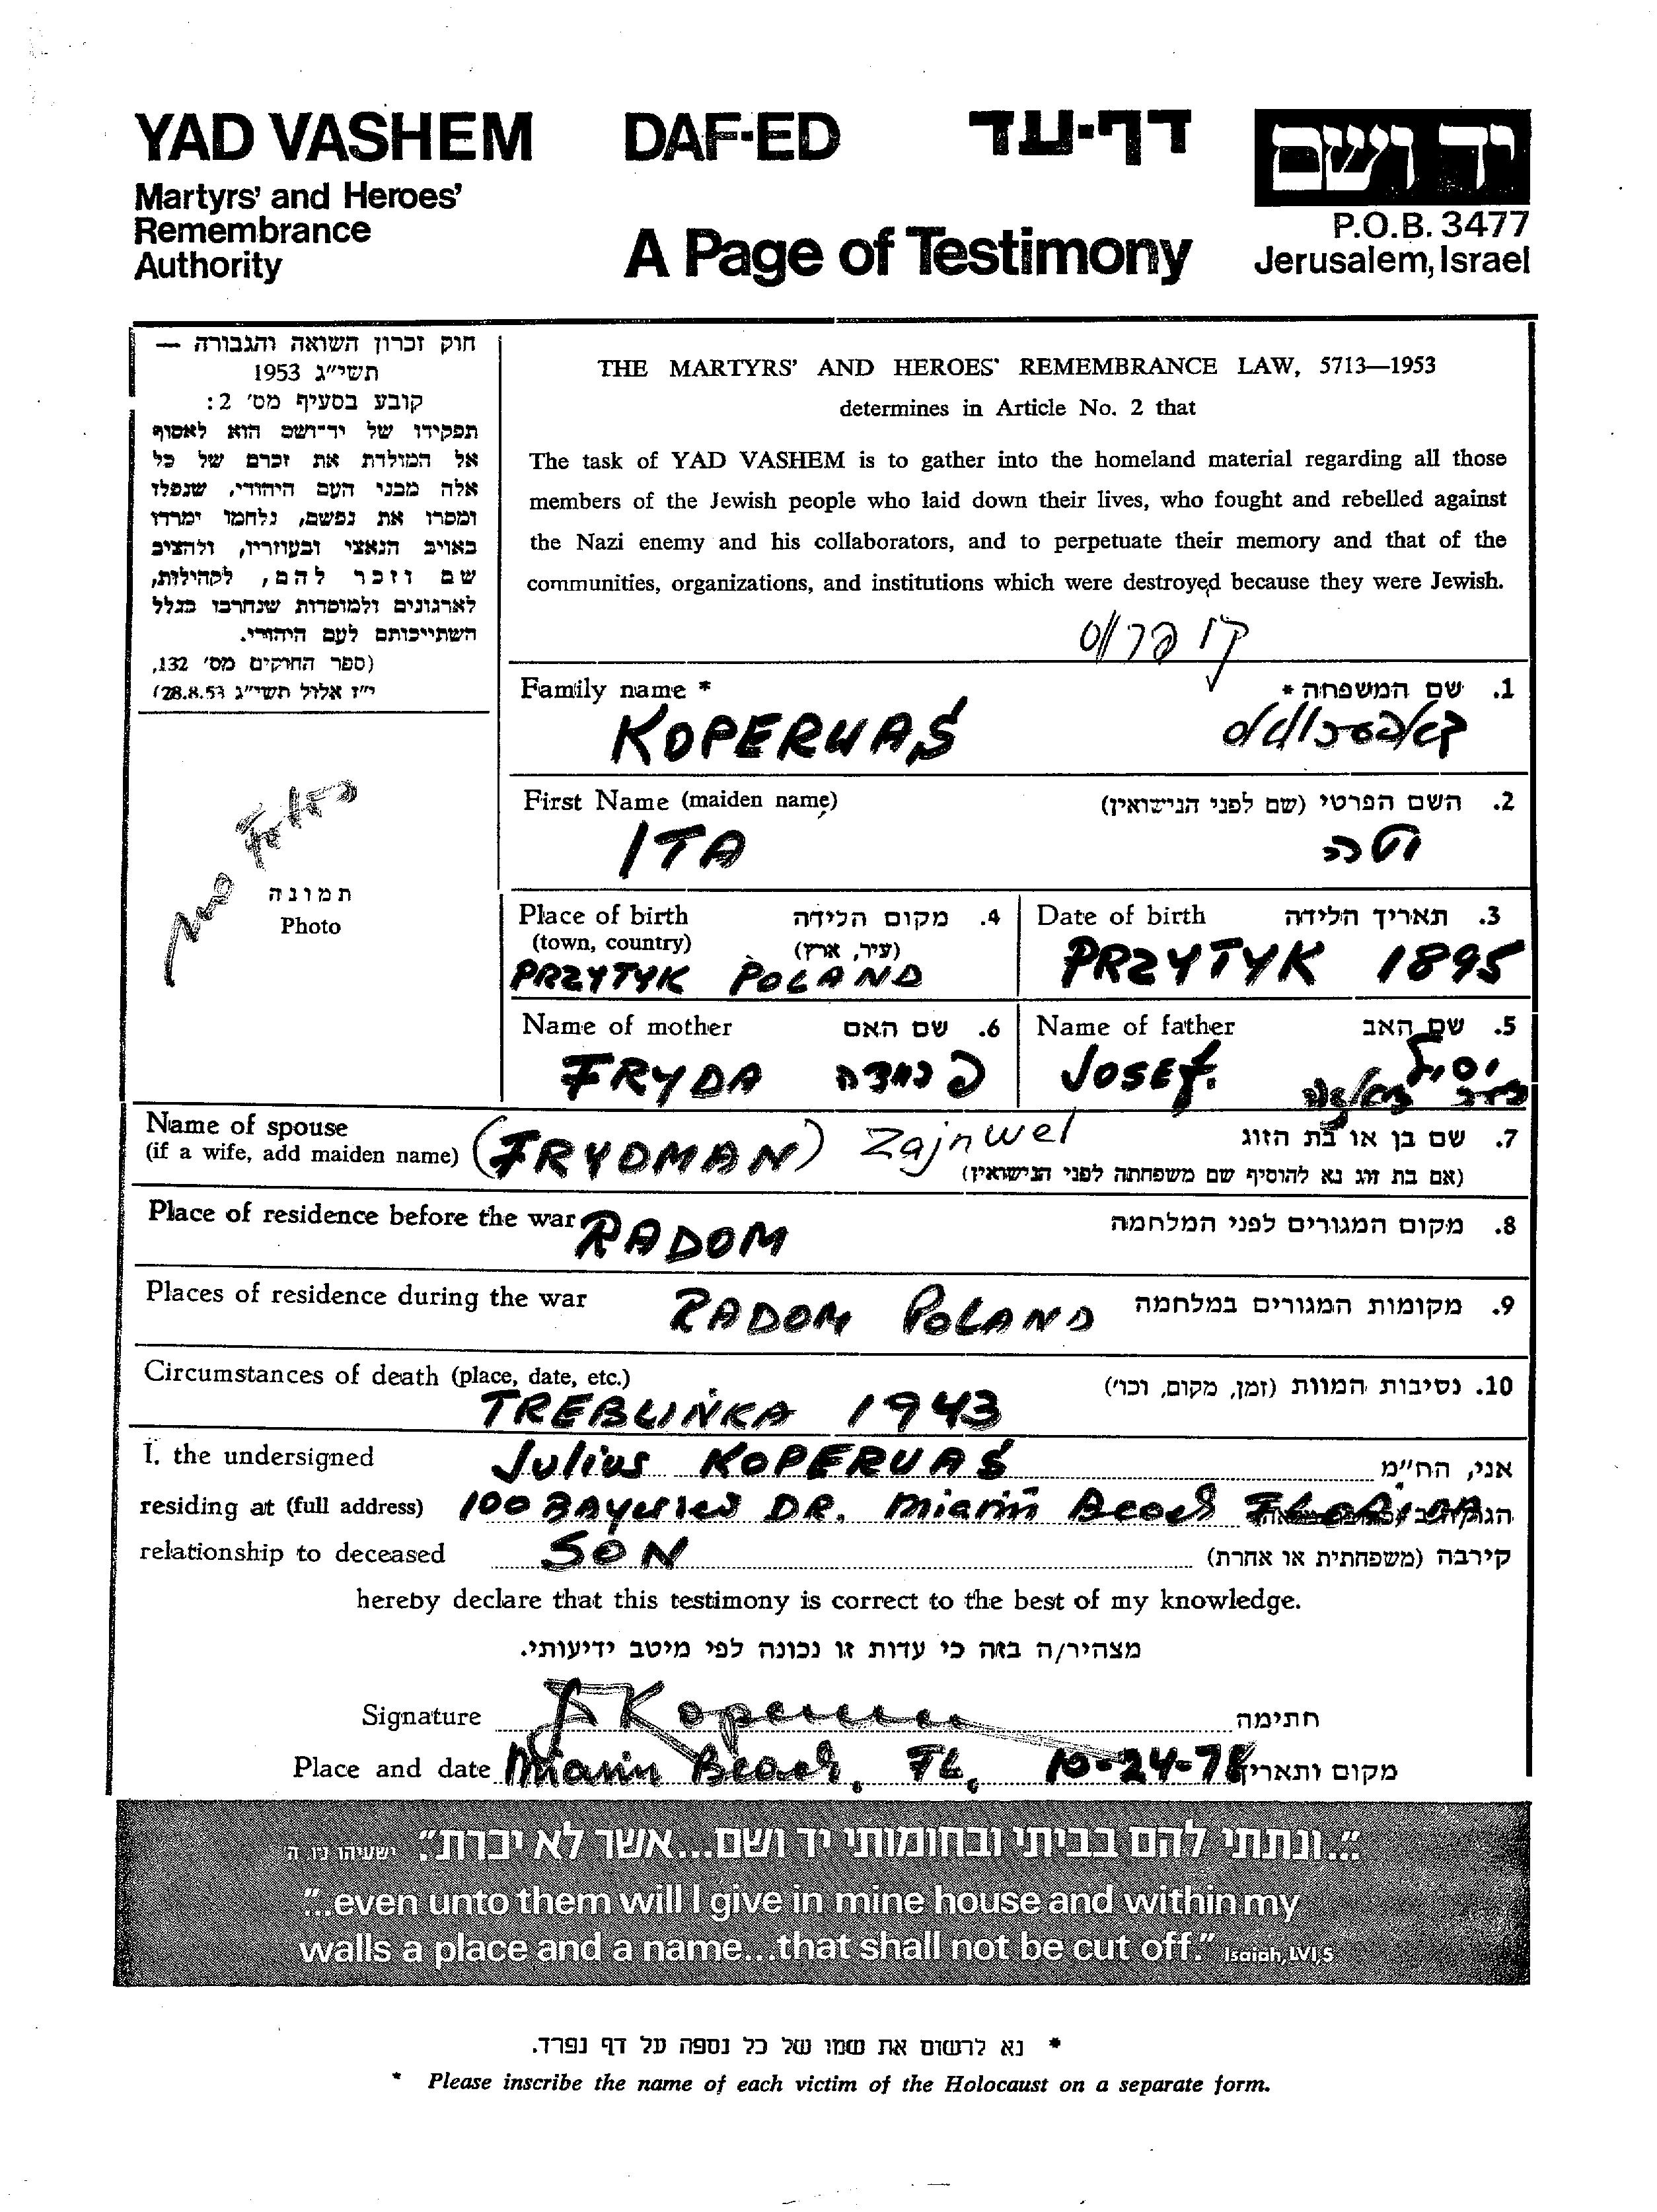 YAD VASHEM DAF-ED דף-עד יד ושם
Martyrs' and Heroes'
Remembrance
Authority
A Page of Testimony
P.O.B. 3477
Jerusalem, Israel
חוק זכרון השואה והגבורה —
תשי"ג 1953
קובע בסעיף מס' 2:
תפקידו של יד-ושם הוא לאסוף
אל המולדת את זכרם של כל
אלה מבני העם היהודי, שנפלו
ומסרו את נפשם, נלחמו ומרדו
באויב הנאצי ובעוזריו, ולהציב
שם וזכר להם, לקהילות,
לארגונים ולמוסדות שנחרבו בגלל
השתייכותם לעם היהודי.
(ספר החוקים מס' 132,
י"ז אלול תשי"ג 28.8.53)
THE MARTYRS' AND HEROES' REMEMBRANCE LAW, 5713—1953
determines in Article No. 2 that
The task of YAD VASHEM is to gather into the homeland material regarding all those
members of the Jewish people who laid down their lives, who fought and rebelled against
the Nazi enemy and his collaborators, and to perpetuate their memory and that of the
communities, organizations, and institutions which were destroyed because they were Jewish.
Family name * 1. שם המשפחה *
KOPERWAS
First Name (maiden name) 2. השם הפרטי (שם לפני הנישואין)
ITA איטה
no Foto
תמונה
Photo
Place of birth 4. מקום הלידה
(town, country) (עיר, ארץ)
PRZYTYK POLAND
Date of birth 3. תאריך הלידה
PRZYTYK 1895
Name of mother 6. שם האם
FRYDA
Name of father 5. שם האב
JOSEF.
Name of spouse 7. שם בן או בת הזוג
(if a wife, add maiden name) (FRYDMAN) Zajnwel
(אם בת זוג נא להוסיף שם משפחתה לפני הנישואין)
Place of residence before the war RADOM 8. מקום המגורים לפני המלחמה
Places of residence during the war RADOM POLAND 9. מקומות המגורים במלחמה
Circumstances of death (place, date, etc.) 10. נסיבות המוות (זמן, מקום, וכו')
TREBLINKA 1943
I, the undersigned Julius KOPERWAS אני, הח"מ
residing at (full address) 100 BAYVIEW DR. Miami Beach FLORIDA
relationship to deceased SON קירבה (משפחתית או אחרת)
hereby declare that this testimony is correct to the best of my knowledge.
מצהיר/ה בזה כי עדות זו נכונה לפי מיטב ידיעותי.
Signature חתימה
Place and date Miami Beach, FL, 10-24-78 מקום ותאריך
"...ונתתי להם בביתי ובחומותי יד ושם...אשר לא יכרת". ישעיהו נו, ה
"...even unto them will I give in mine house and within my
walls a place and a name...that shall not be cut off." Isaiah, LVI, 5
* נא לרשום את שמו של כל נספה על דף נפרד.
* Please inscribe the name of each victim of the Holocaust on a separate form.